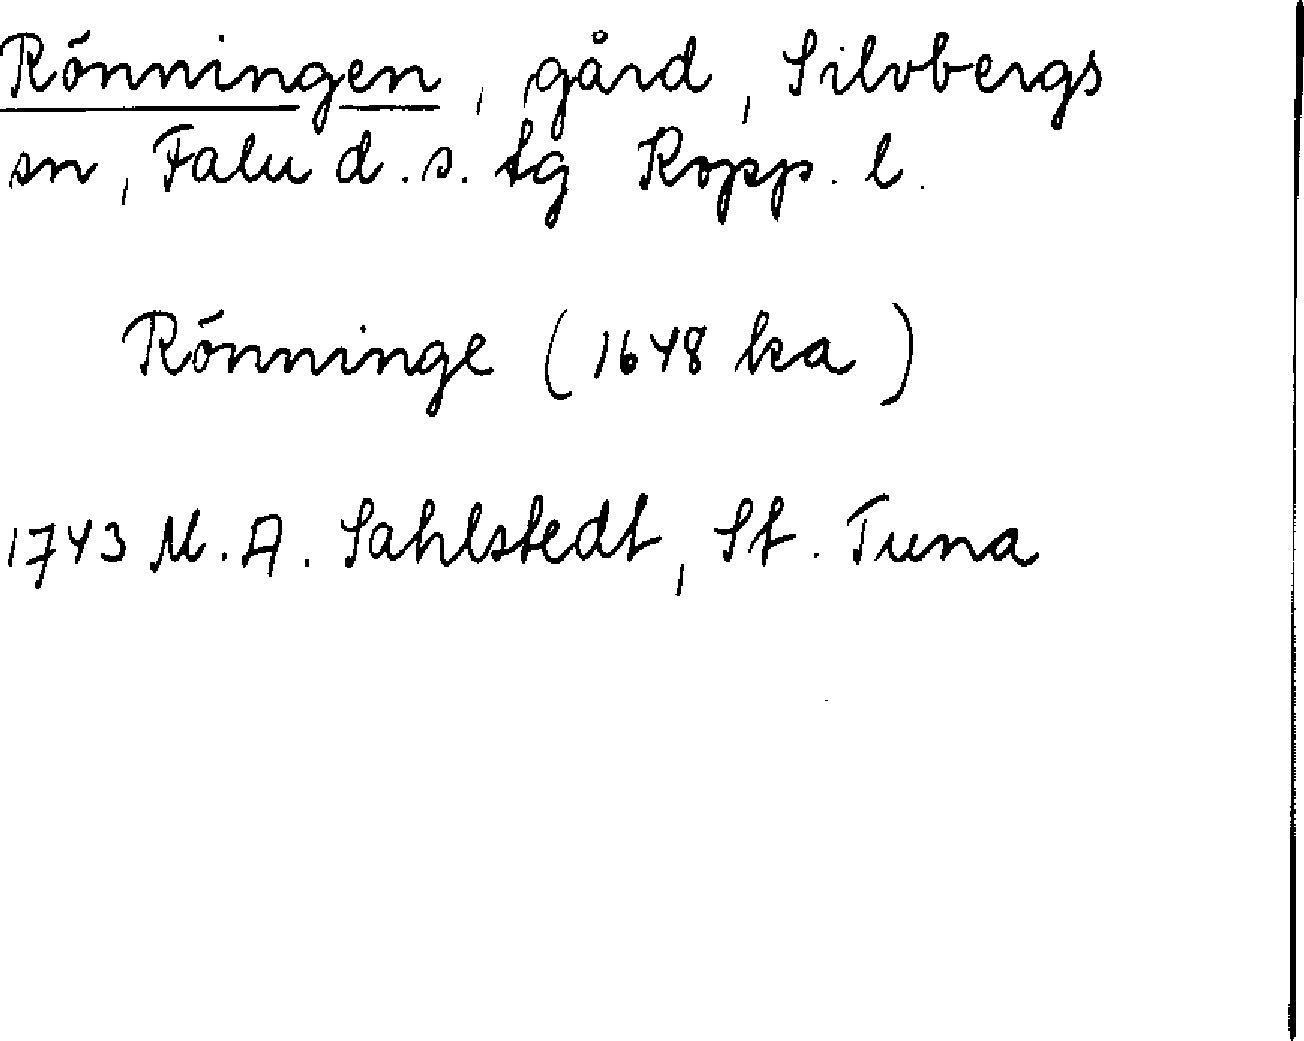 Rönningen, gård, Silvbergs
sn, Falu d. s. tg Kopp. l.
Rönninge (1648 ka)
1743 M. A. Sahlstedt, St. Tuna